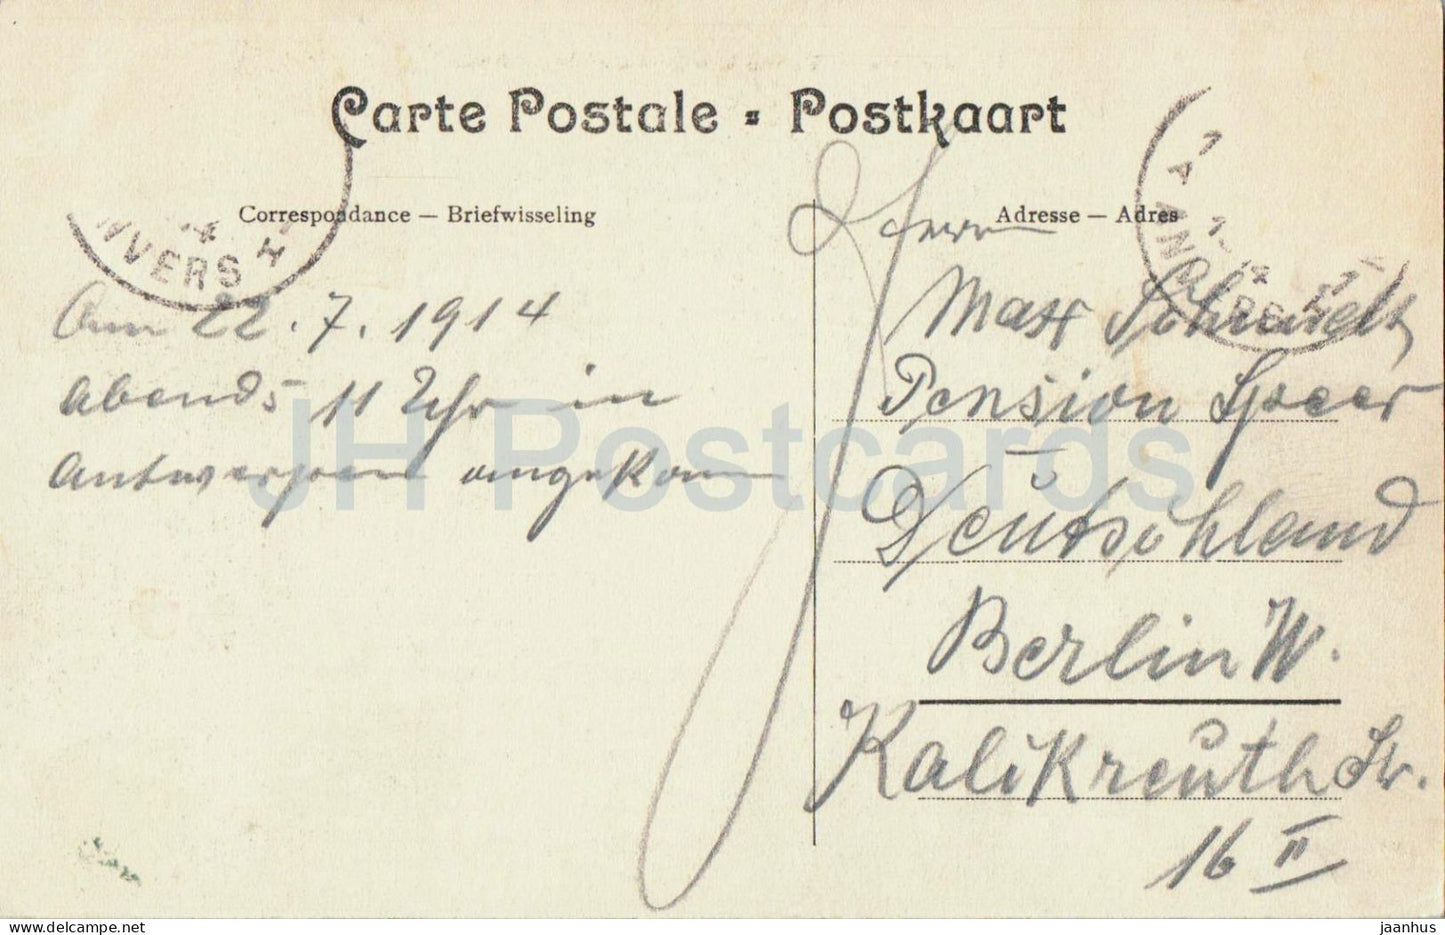 Carte Postale - Postkaart
Correspondance — Briefwisseling
Adresse — Adres
NVERS
Am 22.7.1914
abends 11 Uhr in
Antwerpen angekom
Herrn
Max Schmidt
Pension Speer
Deutschland
Berlin W.
Kalikreuth Str.
16 II
JH Postcards
jaanhus